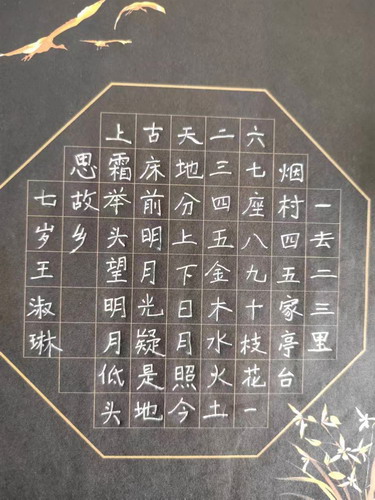 一去二三里
烟村四五家亭台
六七座八九十枝花一
二三四五金木水火土
天地分上下日月照今
古床前明月光疑是地
上霜举头望明月低头
思故乡
七岁王淑琳